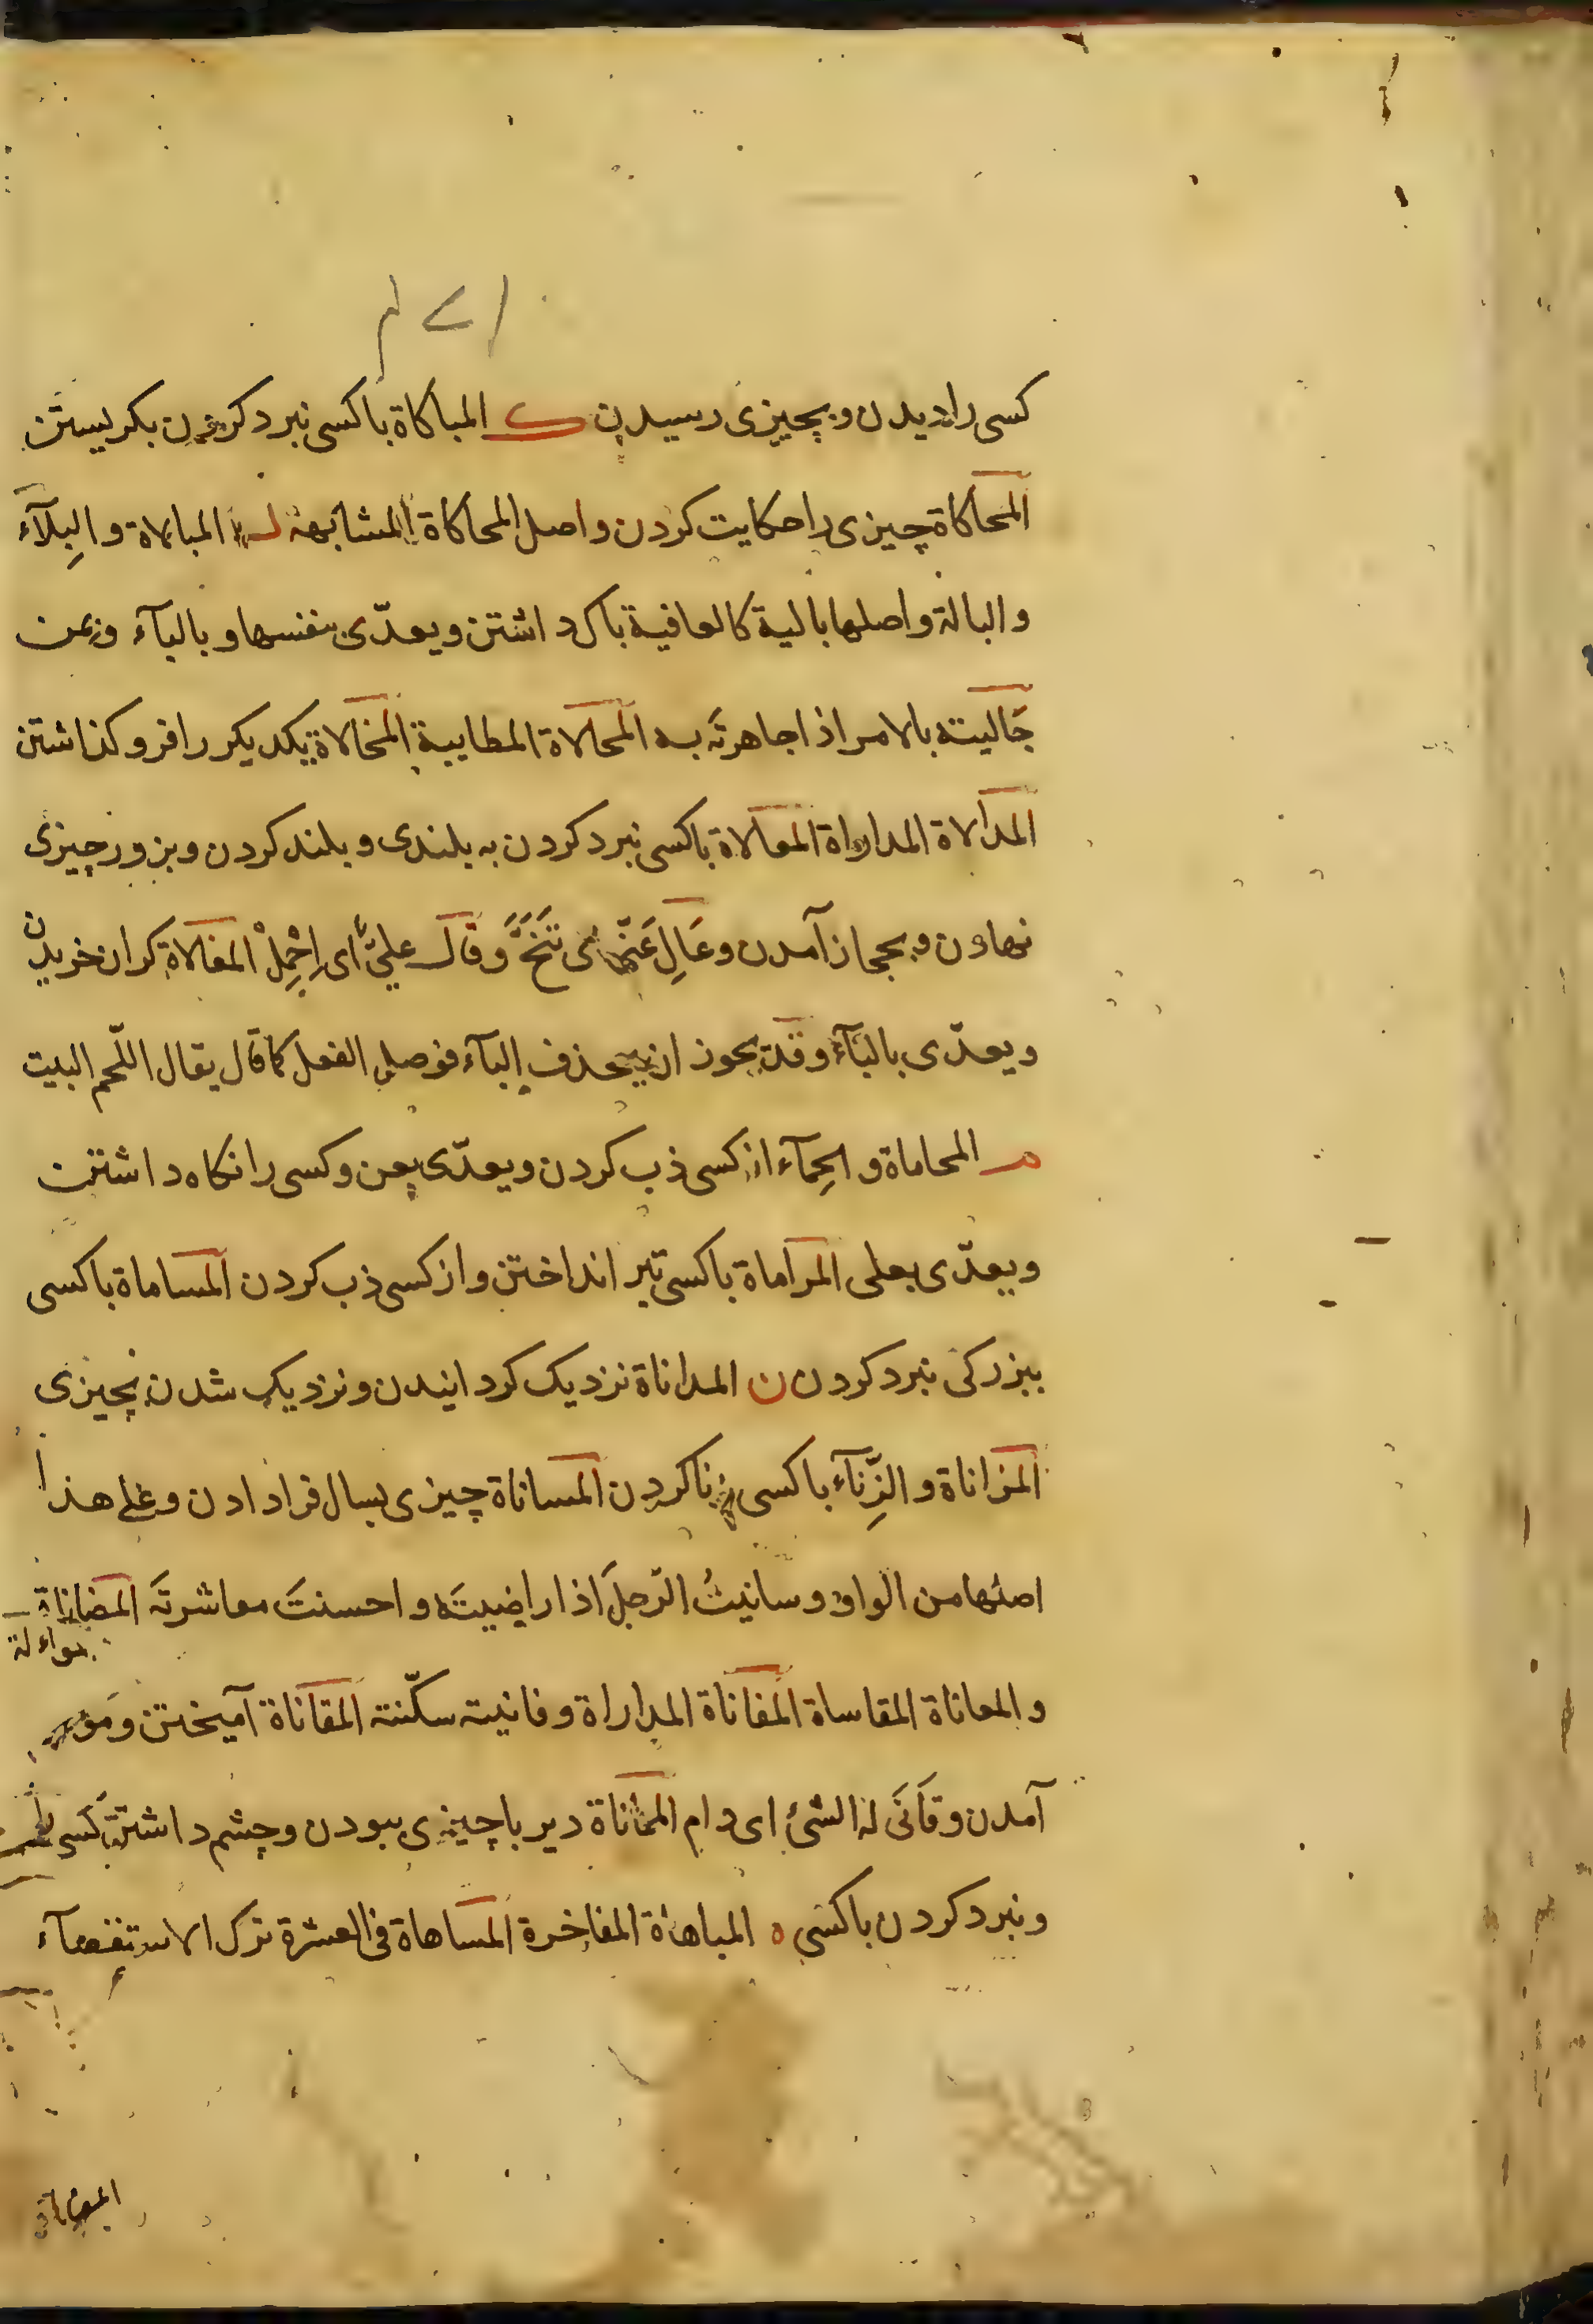 كسى را ديدن و بچيزى رسيدن ك المباكاة با كسى نبرد كردن بكريستن
المحاكاة چيزى را حكايت كردن و اصل المحاكاة المشابهة ل المبالاة و البِلآء
و البالة و اصلها بالية كالعافية باك داشتن و يعدّى بنفسها و بالبآء و بمن
جاليته بالامر اذا جاهرته به المحالاة المطايبة المخالاة يكديكر را فرو كذاشتن
المدالاة المداراة المعالاة با كسى نبرد كردن به بلندى و بلند كردن و بزور چيزى
نهادن و بحجاز آمدن و عَالِ عَنّى اى تَنَحَّ و قال عليَّ اى اِحْمِلْ المغالاة كران خريدن
و يعدّى بالبآء و قد يجوز ان يحذف البآء فوصل الفعل كما قال يقال اللّحم البيت
م المحاماة و الحِمآء از كسى ذب كردن و يعدّى بعن و كسى را نكاه داشتن
و يعدّى بعلى المراماة با كسى تير انداختن و از كسى ذب كردن المساماة با كسى
ببزركى نبرد كردن ن المداناة نزديك كردانيدن و نزديك شدن بچيزى
المزاناة و الزِّنآء با كسى زنا كردن المساناة چيزى بسال فرا دادن و على هذا
اصلها من الواو و سانيتُ الرّجلَ اذا راضيتَه و احسنتَ معاشرتَه المضاناة
و المعاناة المقاساة المفاناة المداراة و فانيته سكّنته المقاناة آميختن و
آمدن و قَانَى له الشئ اى دام المماناة دير با چيزى ببودن و چشم داشتن كسى
و نبرد كردن با كسى ه المباهاة المفاخرة المساهاة فى العشرة ترك الاستقصآء